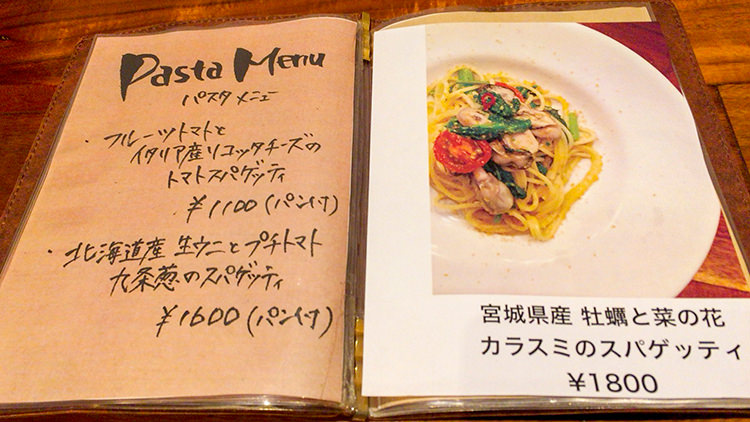 Pasta Menu
パスタ メニュー
・フルーツトマトと
イタリア産リコッタチーズの
トマトスパゲッティ
¥1100(パン付)
・北海道産 生ウニとプチトマト
九条葱のスパゲッティ
¥1600(パン付)
宮城県産 牡蠣と菜の花
カラスミのスパゲッティ
¥1800